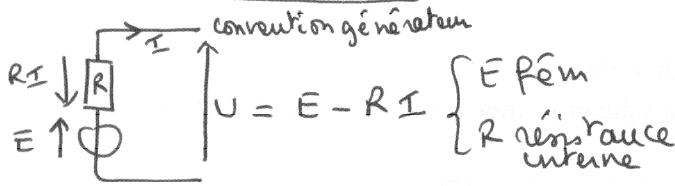 convention générateur
I
RI
R
U = E - RI
E fém
R résistance
interne
E